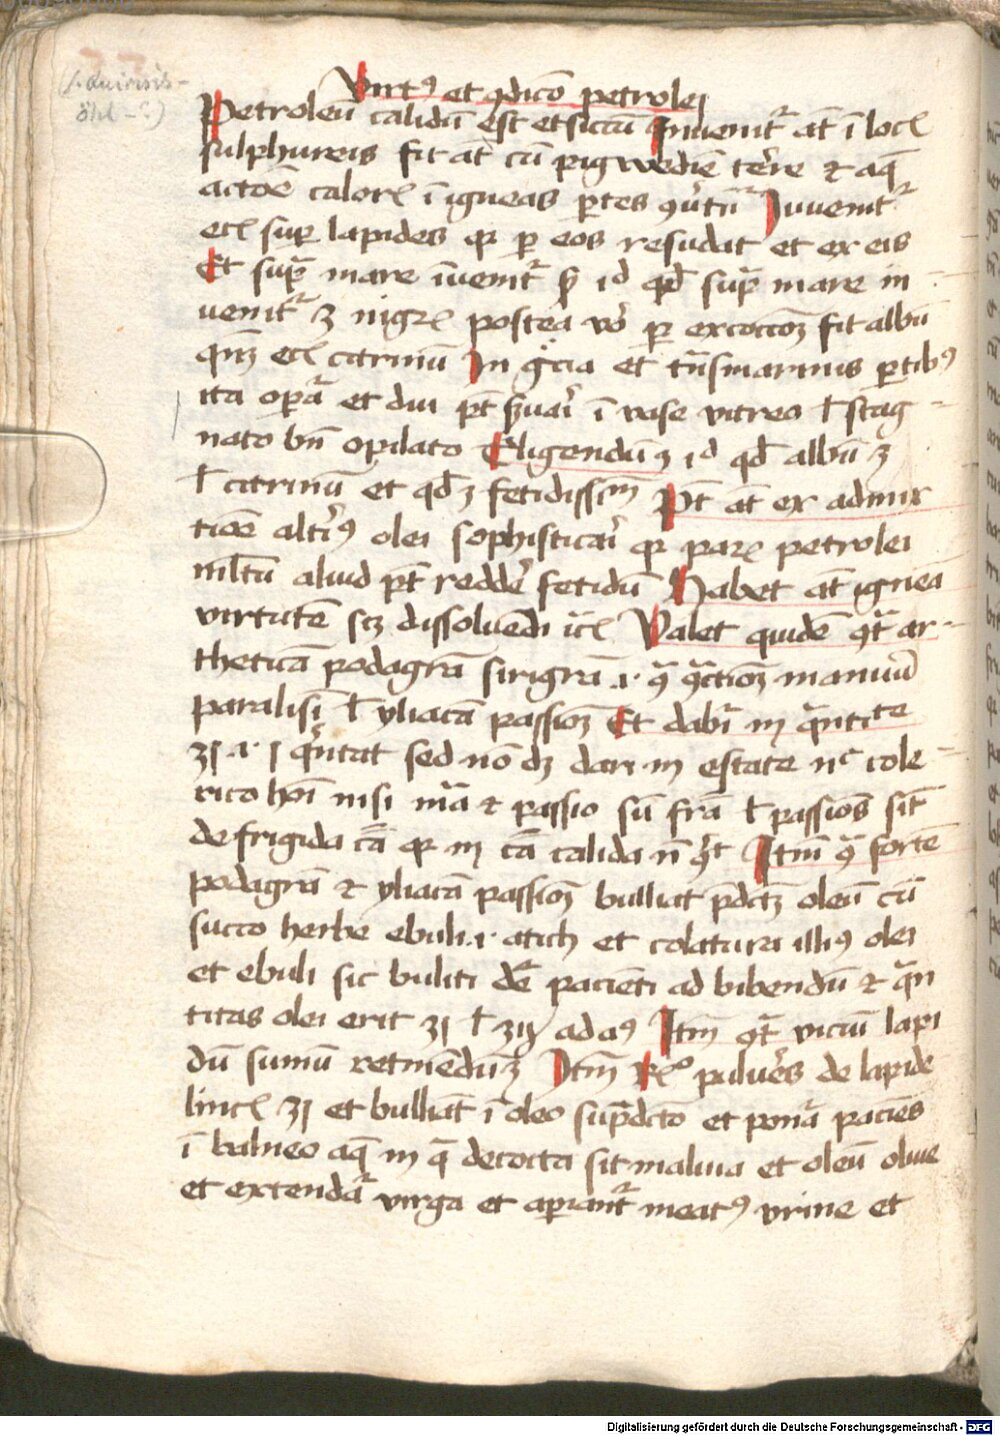 Virtꝰ et ꝯdico petrolei
Petroleū calidū est et siccū Inuenit᷑ at̄ ī locꝭ
sulphureis fit at̄ cū pigwedīe terre ⁊ aq̄
actōe calorꝭ ī igneas ꝑtes ꝯu᷑tit᷑ Inuenit᷑
ecꝭ suꝑ lapides qꝛ ꝑ eos resudat et ex eis
Et supᷓ mare īuenit᷑ sꝫ id qd̄ supᷓ mare in
uenit᷑ ꝫ nigrꝭ postea vō ꝑ excoccōꝫ fit albū
qn̄ꝫ ecꝭ citrinū In gᷓcia et tn̄smarinis ꝑtibꝰ
ita oꝑat᷑ et diu pt̄ ẜuari ī vase vitreo ł stag
nato bn̄ opilato Eligendū ꝫ id qd̄ albū ꝫ
ł citrinū et qd̄ ꝫ fetidissimꝰ Pt̄ at̄ ex admix
tiōe altiꝰ olei sophisticari qꝛ parꝫ petrolei
mltū aliud pt̄ reddere fetidū Habet at̄ ignea
virtutē scꝫ dissoluēdi icꝭ Valet quidē ꝯt᷑ ar
theticā podagrā sirigrā .i. ꝯ ꝯᷓctionꝫ manuū
paralisī ł yliacā passionꝫ Et dabit᷑ in qᷓntitate
ʒi .i. i qᷓntitat sed nō dꝫ dari in estate nc̄ cole
rico hōi nisi mīa ⁊ passio sū fr̄a ł passiones sīt
de frigida cā qꝛ in cā calida nō ꝯfert Itm̄ ꝯᷓ fortē
podagrā ⁊ yliacā passionꝫ bulliat p̄dctꝫ oleū cū
succo herbe ebuli .i. atich et colatura illiꝰ olei
et ebuli sic buliti det᷑ paciēti ad bibendū ⁊ qᷓn
titas olei erit ʒi ł ʒij ad as Itm̄ ꝯt᷑ viciū lapi
dū sumū remediū ꝫ Itm̄ Rᵒ pulueris de lapide
lincꝭ ʒi et bulliat ī oleo supᷓdcto et ponat᷑ paciēs
ī balneo aq̄ in qᷓ decocta sit malua et oleū oliue
et extendat᷑ virga et aꝑiant᷑ meatꝰ vrine et